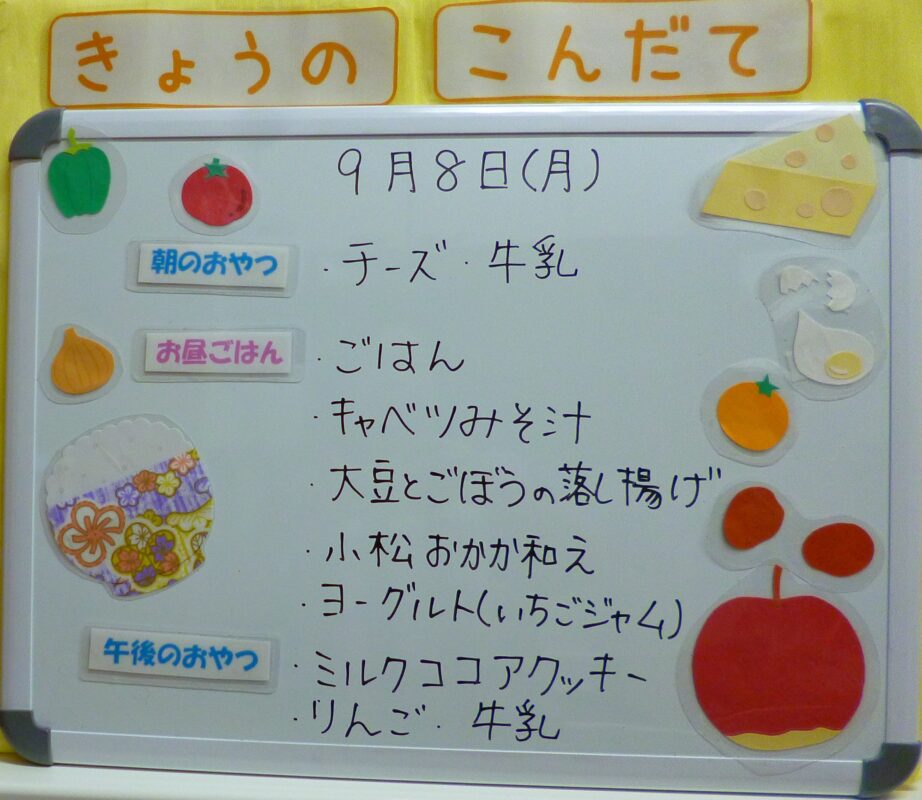 きょうの こんだて
9月8日(月)
朝のおやつ ・チーズ・牛乳
お昼ごはん ・ごはん
・キャベツみそ汁
・大豆とごぼうの落し揚げ
・小松おかか和え
・ヨーグルト(いちごジャム)
午後のおやつ ・ミルクココアクッキー
・りんご・牛乳